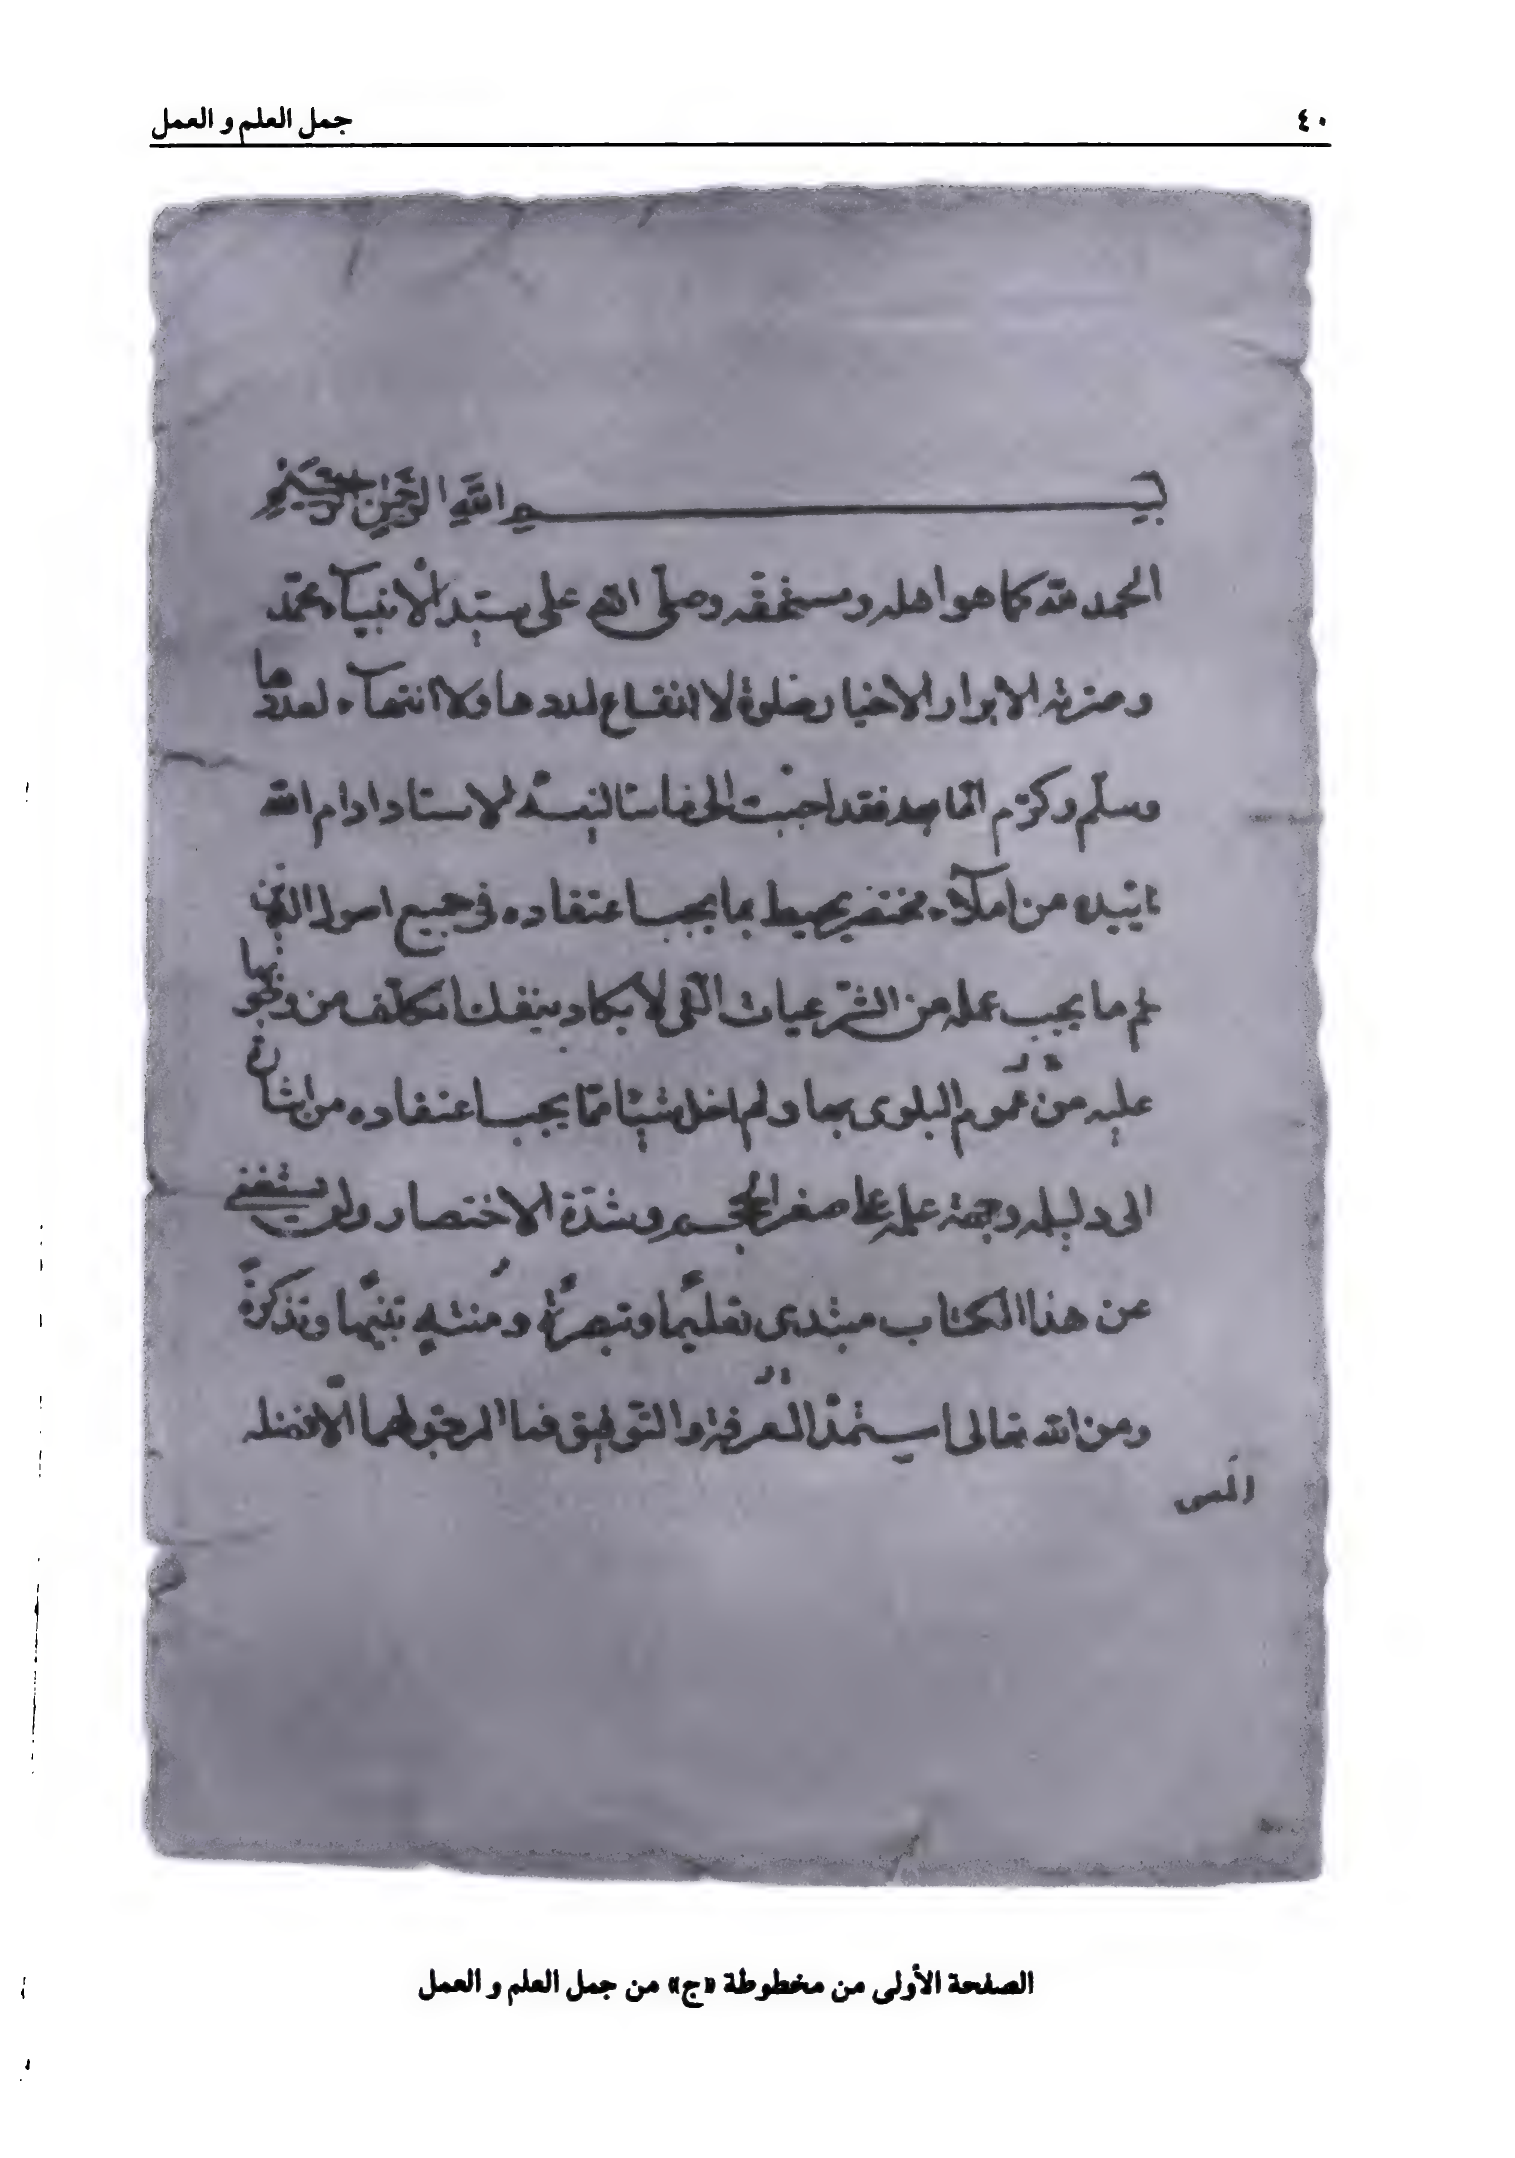 ٤٠
جمل العلم و العمل
بسم الله الرحمن الرحيم
الحمد لله كما هو اهله و مستحقه وصلّى الله على سيّد الانبيآء محمّد
و عترته الابرار الاخيار صلوة لا انقطاع لمددها ولا انتهآء لعددها
وسلّم وكرّم امّا بعد فقد اجبت الى ما سالنيه الاستاد ادام الله
تاييده من املآء مختصر يحيط بما يجب اعتقاده فى جميع اصول الدين
ثم ما يجب عمله من الشرعيات التى لا يكاد ينفك المكلّف من وجوبها
عليه من عموم البلوى بها ولم اخل شيئا ممّا يجب اعتقاده من اشارة
الى دليله وجهة علمه على صغر الحجم وشدّة الاختصار ولن يستغنى
عن هذا الكتاب مبتدى تعليمًا وتبصرةً ومُنتهٍ تنبيهًا وتذكرةً
ومن الله تعالى استمدّ المعرفة والتّوفيق فما المرجوّ لهما الّا فضله
الصفحة الأولى من مخطوطة «ج» من جمل العلم و العمل